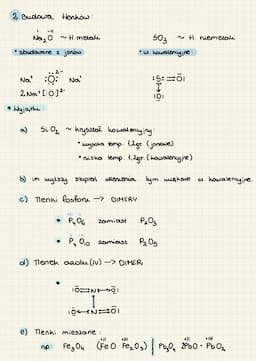 2. Budowa tlenków:
Na₂O ~ tl. metali
SO₃ ~ tl. niemetali
* zbudowane z jonów
* w. kowalencyjne
Na⁺ :Ö:²⁻ Na⁺
2Na⁺[:Ö:]²⁻
* Wyjątki:
a) SiO₂ ~ kryształ kowalencyjny:
• wysoka temp. t./gr. (jonowe)
• niska temp. t./gr. (kowalencyjne)
b) im wyższy stopień utlenienia tym większe w. kowalencyjne
c) Tlenki fosforu → DIMERY
• P₄O₆ zamiast P₂O₃
• P₄O₁₀ zamiast P₂O₅
d) Tlenek azotu (IV) → DIMER
e) Tlenki mieszane:
np: Fe₃O₄ (FeO·Fe₂O₃) | Pb₃O₄ 2PbO·PbO₂